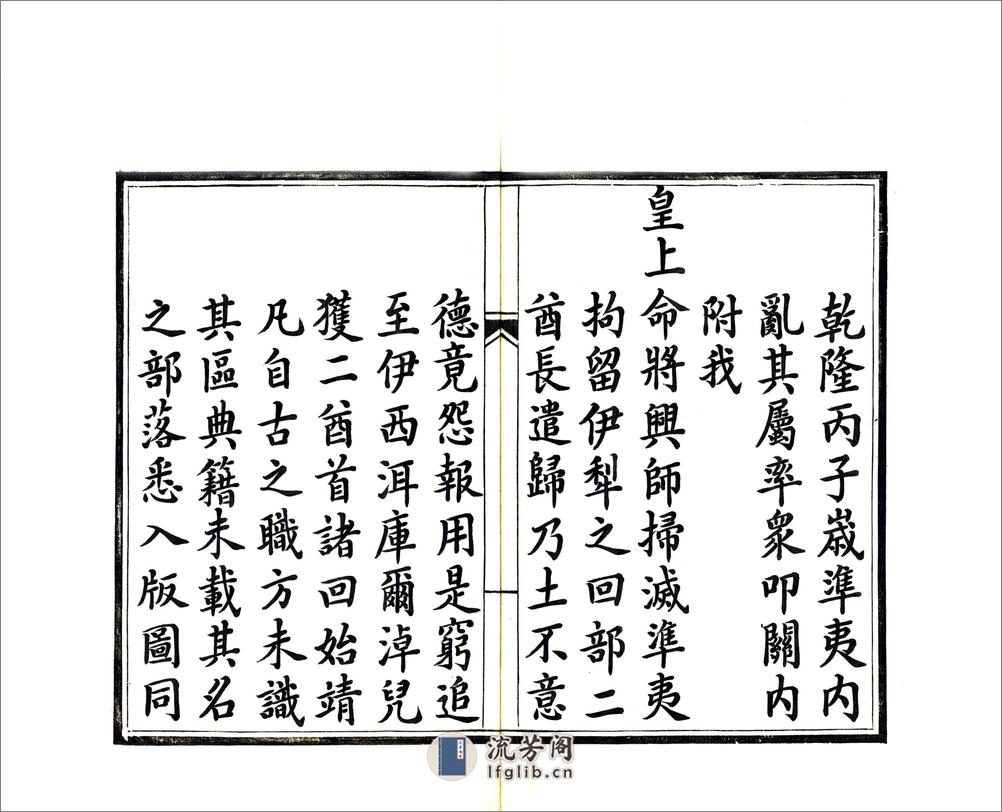 乾隆丙子嵗準夷内
亂其屬率衆叩關内
附我
皇上命將興師掃滅準夷
拘留伊犁之回部二
酋長遣歸乃土不意
德竟怨報用是窮追
至伊西洱庫爾淖兒
獲二酋首諸回始靖
凡自古之職方未識
其區典籍未載其名
之部落悉入版圖同
流芳阁
lfglib.cn